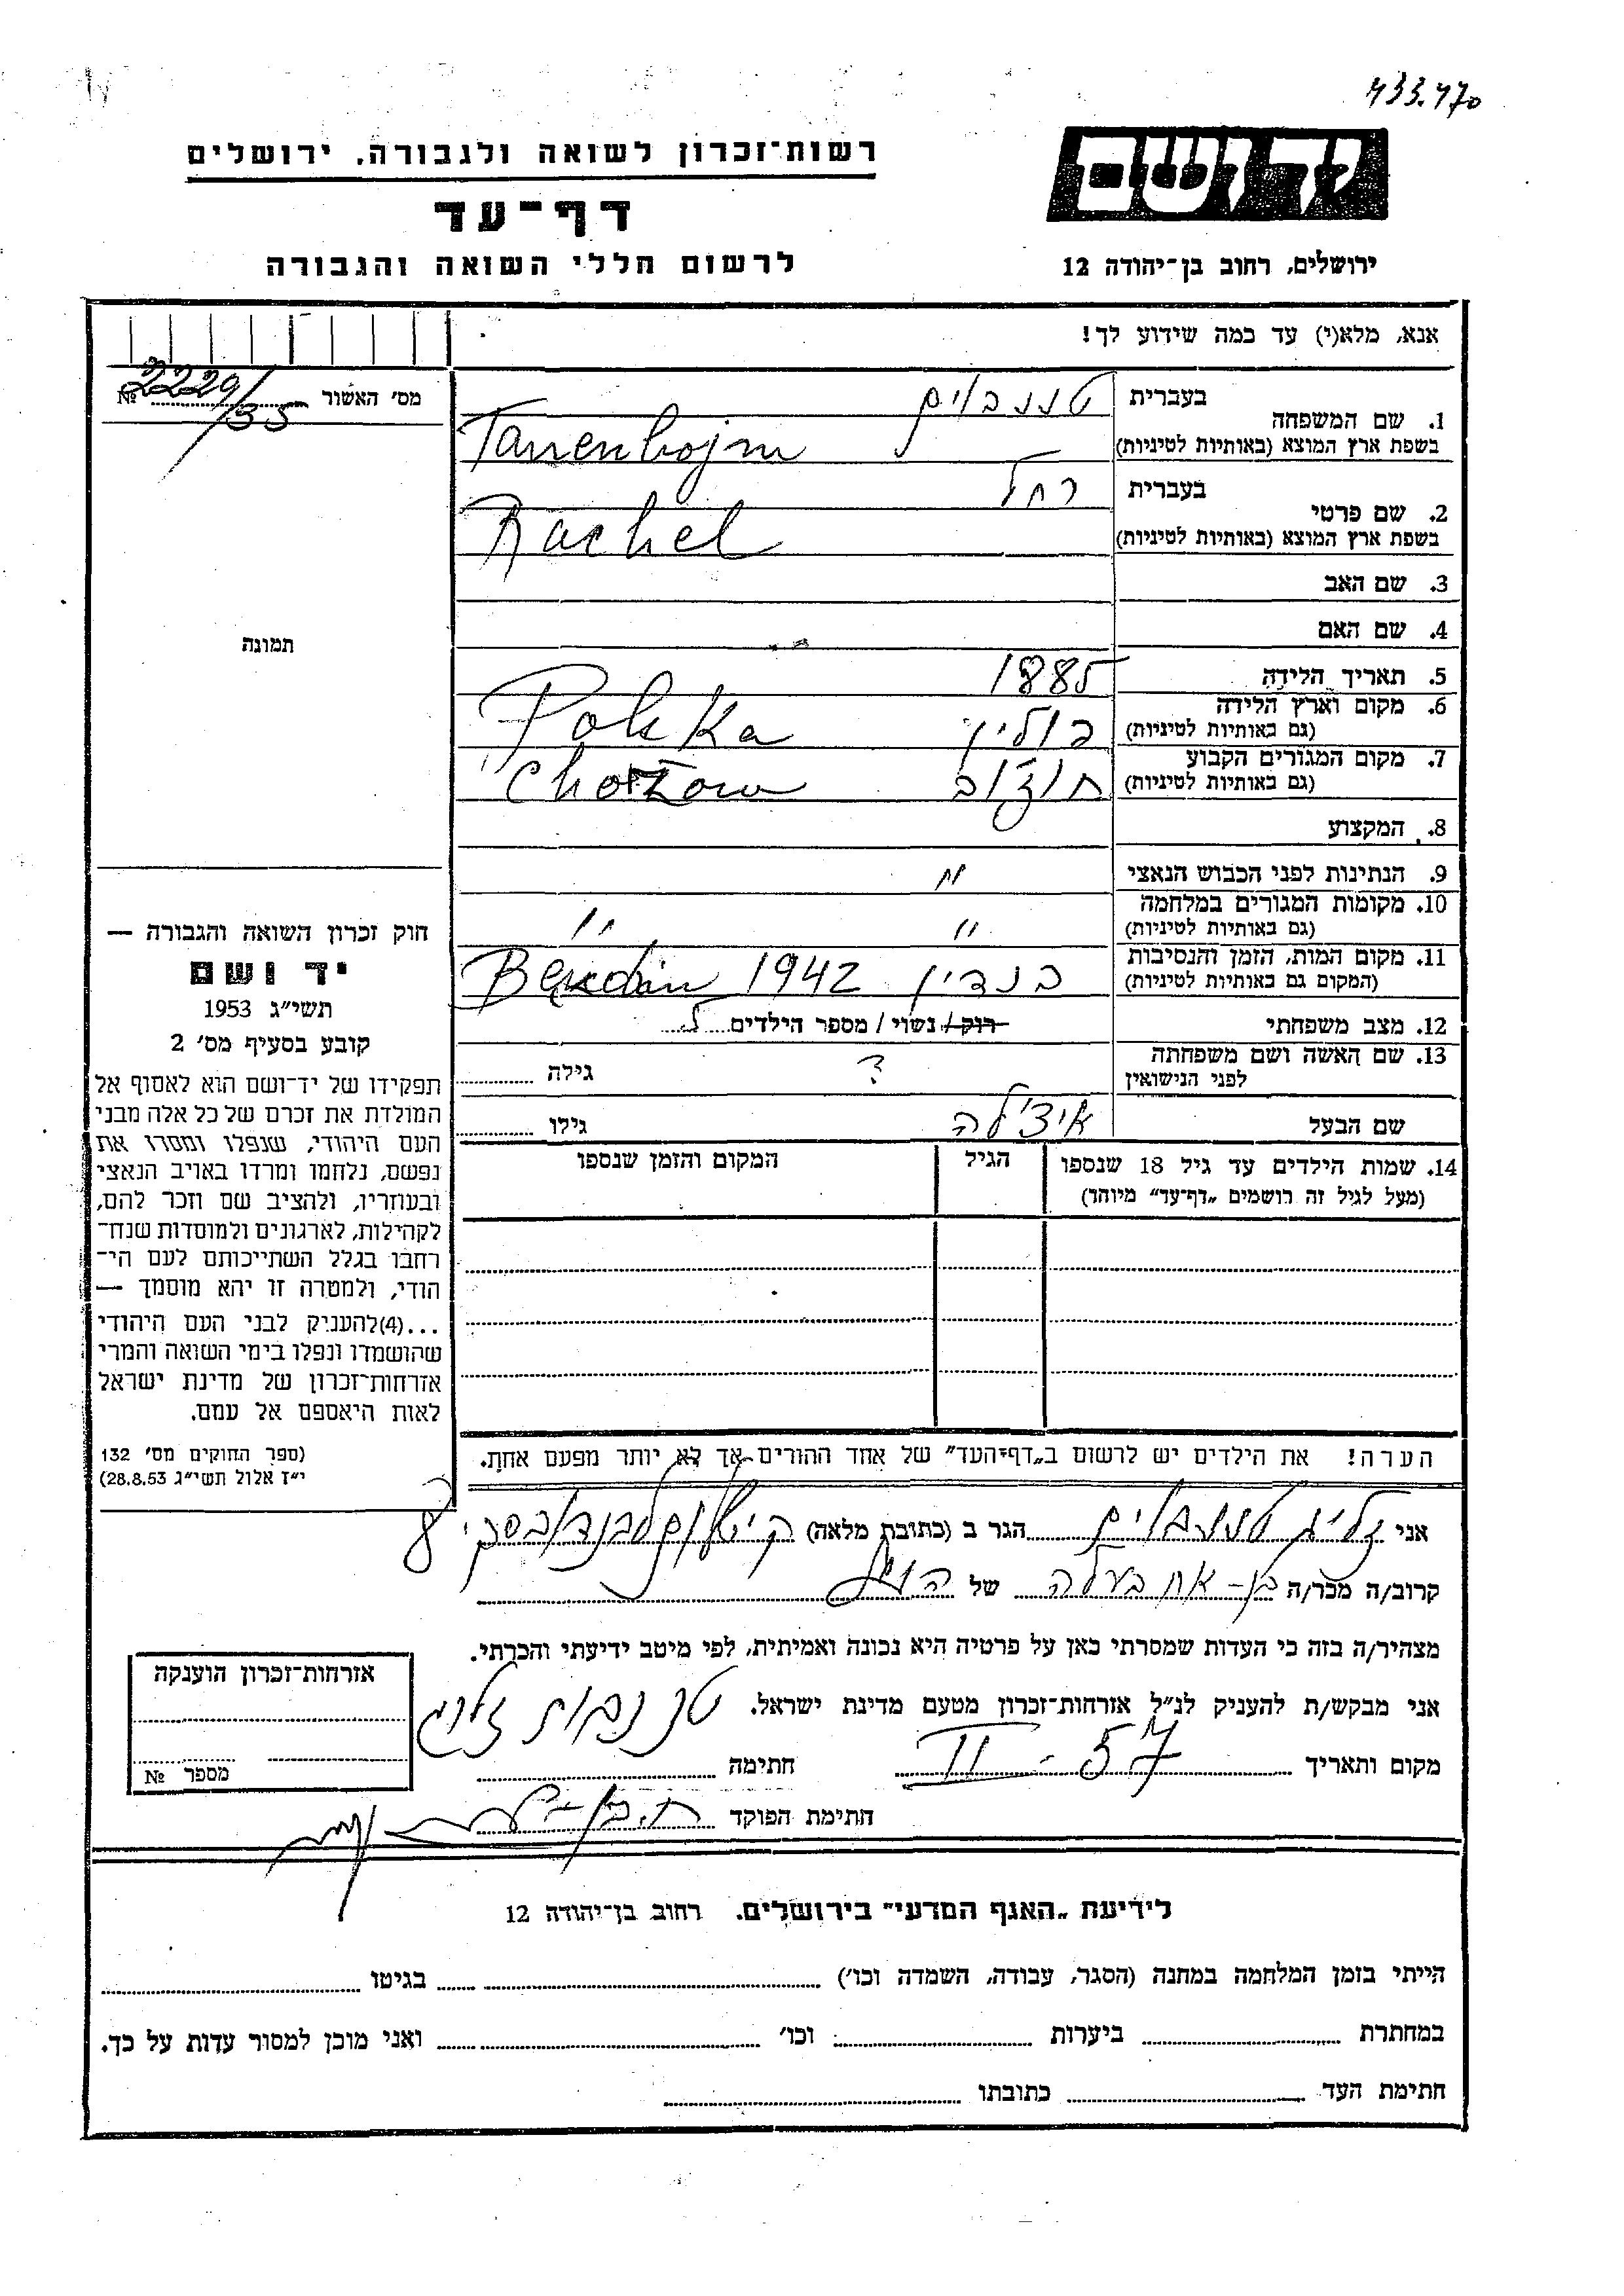 433.470
רשות־זכרון לשואה ולגבורה. ירושלים
יד ושם
דף־עד
לרשום חללי השואה והגבורה
ירושלים, רחוב בן־יהודה 12
אנא, מלא(י) עד כמה שידוע לך!
מס׳ האשור 2229/35 №
1. שם המשפחה
בעברית טננבוים
בשפת ארץ המוצא (באותיות לטיניות) Tannenbojm
2. שם פרטי
בעברית רחל
בשפת ארץ המוצא (באותיות לטיניות) Rachel
3. שם האב
4. שם האם
תמונה
5. תאריך הלידה 1885
6. מקום וארץ הלידה
(גם באותיות לטיניות) פולין Polska
7. מקום המגורים הקבוע
(גם באותיות לטיניות) חוז׳וב Chorzow
8. המקצוע
9. הנתינות לפני הכבוש הנאצי "
10. מקומות המגורים במלחמה
(גם באותיות לטיניות) " "
11. מקום המות, הזמן והנסיבות
(המקום גם באותיות לטיניות) בנדין 1942 Bendin
12. מצב משפחתי רוק / נשוי / מספר הילדים
13. שם האשה ושם משפחתה
לפני הנישואין ? גילה
שם הבעל איצ׳לה גילו
14. שמות הילדים עד גיל 18 שנספו הגיל המקום והזמן שנספו
(מעל לגיל זה רושמים „דף־עד” מיוחד)
הערה! את הילדים יש לרשום ב„דף־העד” של אחד ההורים אך לא יותר מפעם אחת.
חוק זכרון השואה והגבורה —
יד ושם
תשי״ג 1953
קובע בסעיף מס׳ 2
תפקידו של יד־ושם הוא לאסוף אל
המולדת את זכרם של כל אלה מבני
העם היהודי, שנפלו ומסרו את
נפשם, נלחמו ומרדו באויב הנאצי
ובעוזריו, ולהציב שם וזכר להם,
לקהילות, לארגונים ולמוסדות שנח־
רבו בגלל השתייכותם לעם הי־
הודי, ולמטרה זו יהא מוסמך —
...(4)להעניק לבני העם היהודי
שהושמדו ונפלו בימי השואה והמרי
אזרחות־זכרון של מדינת ישראל
לאות היאספם אל עמם.
(ספר החוקים מס׳ 132
י״ז אלול תשי״ג 28.8.53)
אני זליג טננבוים הגר ב (כתובת מלאה)
קרוב/ה מכר/ה בן־אח בעלה של הנ״ל
מצהיר/ה בזה כי העדות שמסרתי כאן על פרטיה היא נכונה ואמיתית, לפי מיטב ידיעתי והכרתי.
אני מבקש/ת להעניק לנ״ל אזרחות־זכרון מטעם מדינת ישראל. טננבוים זליג
מקום ותאריך II - 57 חתימה
חתימת הפוקד
אזרחות־זכרון הוענקה
מספר №
לידיעת „האגף המדעי” בירושלים. רחוב בן־יהודה 12
הייתי בזמן המלחמה במחנה (הסגר, עבודה, השמדה וכו׳) בגיטו
במחתרת ביערות וכו׳ ואני מוכן למסור עדות על כך.
חתימת העד כתובתו